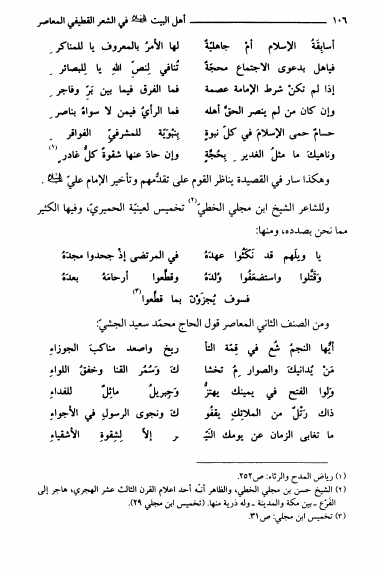 ١٠٦ أهل البيت في الشعر القطيفي المعاصر
أسابِقَةُ الإسلامِ أمْ جاهليّةٌ لها الأمرُ بالمعروف يا للمناكرِ
فياهل بدعوى الاجتماع محجّة تُنافي لِنصِّ اللهِ يا لِلبصائرِ
إذا لم تكنْ شرط الإمامة عصمة فما الفرق فيما بين بَرّ وفاجرِ
وإن كان من لم ينصر الحقّ أهله فما الرأيُ فيمن لا سواهُ بناصرِ
حسامٌ حمى الإسلامَ في كلّ نبوةٍ بِنَبْوَيّة للمشرفيّ الفواقرِ
وناهيكَ ما مثلُ الغديرِ بِحُجّةٍ وإن حادَ عنها شقوةً كلُّ غادرِ(١)
وهكذا سار في القصيدة يناظر القوم على تقدُّمهم وتأخير الإمام عليّ .
وللشاعر الشيخ ابن مجلي الخطي(٢) تخميس لعينيّة الحميريّ، وفيها الكثير
مما نحن بصدده، ومنها:
يا ويلَهم قد نَكَثُوا عهدَهُ في المرتضى إذْ جحدوا مجدَهُ
وَقَتَّلوا واستضعَفُوا وُلدَهُ وقطّعوا أرحامَهُ بعدَهُ
فسوف يُجزَوْن بما قطّعوا(٣)
ومن الصنف الثاني المعاصر قول الحاج محمّد سعيد الجشيّ:
أيُّها النجمُ شُع في قِمّة التأ ريخ واصعد مناكبَ الجوزاءِ
مَنْ يُدانيكَ والصوارم تخشا كَ وَسُمْر القنا وخفقُ اللواءِ
وَلوا الفتح في يمينك يهتزُّ وَجِبريلُ ماثِلٌ للفداءِ
ذاك رَتْلٌ من الملائكِ يقفُو كَ ونجوى الرسولِ في الأجواءِ
ما تغابى الزمان عن يومك النَيّـ ـر إلاّ لِشِقوةِ الأشقياءِ
(١) رياض المدح والرثاء: ص٢٥٢.
(٢) الشيخ حسن بن مجلي الخطي، والظاهر أنّه أحد أعلام القرن الثالث عشر الهجري، هاجر إلى
الفَرْع ـ بين مكة والمدينة ـ وله ذرية منها. (تخميس ابن مجلي ٢٩).
(٣) تخميس ابن مجلي: ص٣١.